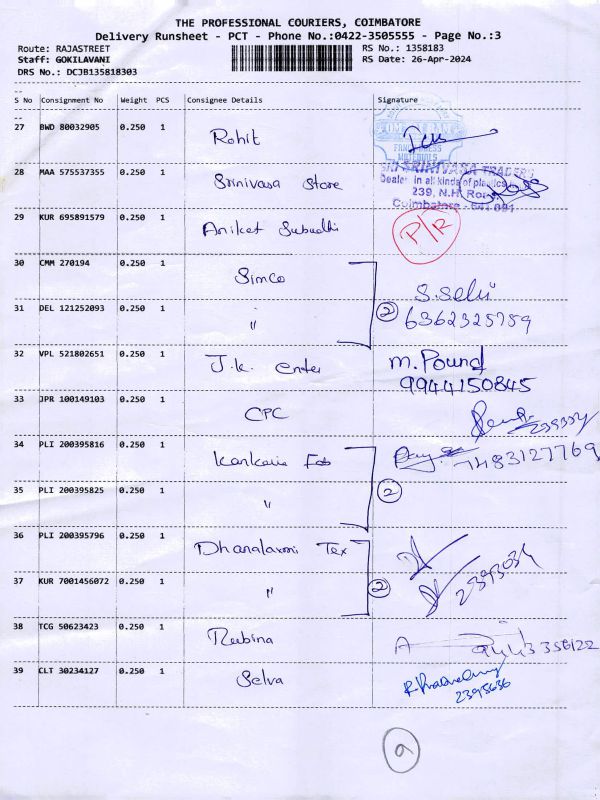 THE PROFESSIONAL COURIERS, COIMBATORE
Delivery Runsheet - PCT - Phone No.:0422-3505555 - Page No.:3
Route: RAJASTREET RS No.: 1358183
Staff: GOKILAVANI RS Date: 26-Apr-2024
DRS No.: DCJB135818303
S No Consignment No Weight PCS Consignee Details Signature
27 BWD 80032905 0.250 1 Rohit
28 MAA 575537355 0.250 1 Srinivasa Store
SRI SRINIVASA TRADERS
Dealer in all kinds of plastics
239, N.H. Road
Coimbatore - 641 001
29 KUR 695891579 0.250 1 Aniket Subudhi P/R
30 CMM 270194 0.250 1 Simco S.Selvi
31 DEL 121252093 0.250 1 " 2 6362325759
32 VPL 521802651 0.250 1 J.k. enter M.Pound
9944150845
33 JPR 100149103 0.250 1 CPC
34 PLI 200395816 0.250 1 Kankaria Fab 7483127769
35 PLI 200395825 0.250 1 " 2
36 PLI 200395796 0.250 1 Dhanalaxmi Tex
37 KUR 7001456072 0.250 1 " 2 2393034
38 TCG 50623423 0.250 1 Rubina
39 CLT 30234127 0.250 1 Selva
2395636
9